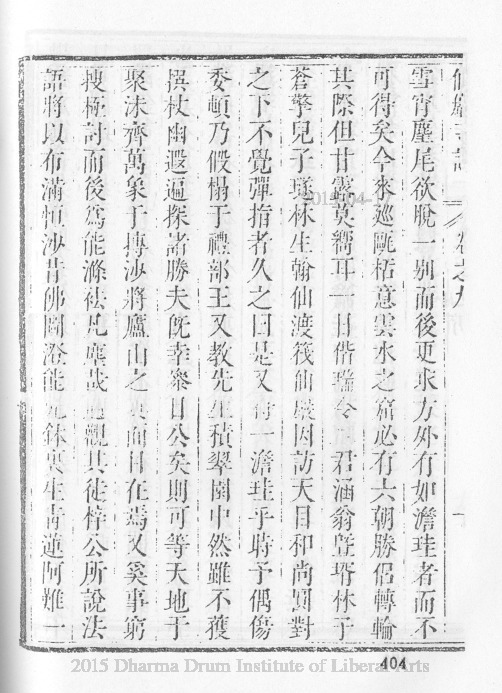 仙巖寺誌 卷之九
雪宵麈尾欲脫一別而後更求方外有如澹珪者而不
可得矣今來遊甌栝意雲水之窟必有六朝勝侶轉輪
其際但甘露莫嚮耳一日偕瑞令君涵翁曁壻林子
蒼擎兒子璲林生翰仙渡筏仙巖因訪天目和尚質對
之下不覺彈指者久之曰是又得一澹珪乎時予偶傷
委頓乃假榻于禮部王又教先生積翠園中然雖不獲
撰杖幽遐遍探諸勝夫旣幸參目公矣則可等天地于
聚沫齊萬象于摶沙將廬山之眞面目在焉又奚事窮
搜極討而後爲能滌袪凡塵哉觀其徒梓公所說法
語將以布滿恒沙昔佛圖澄能鉢裏生青蓮阿難一
404
2015 Dharma Drum Institute of Liberal Arts